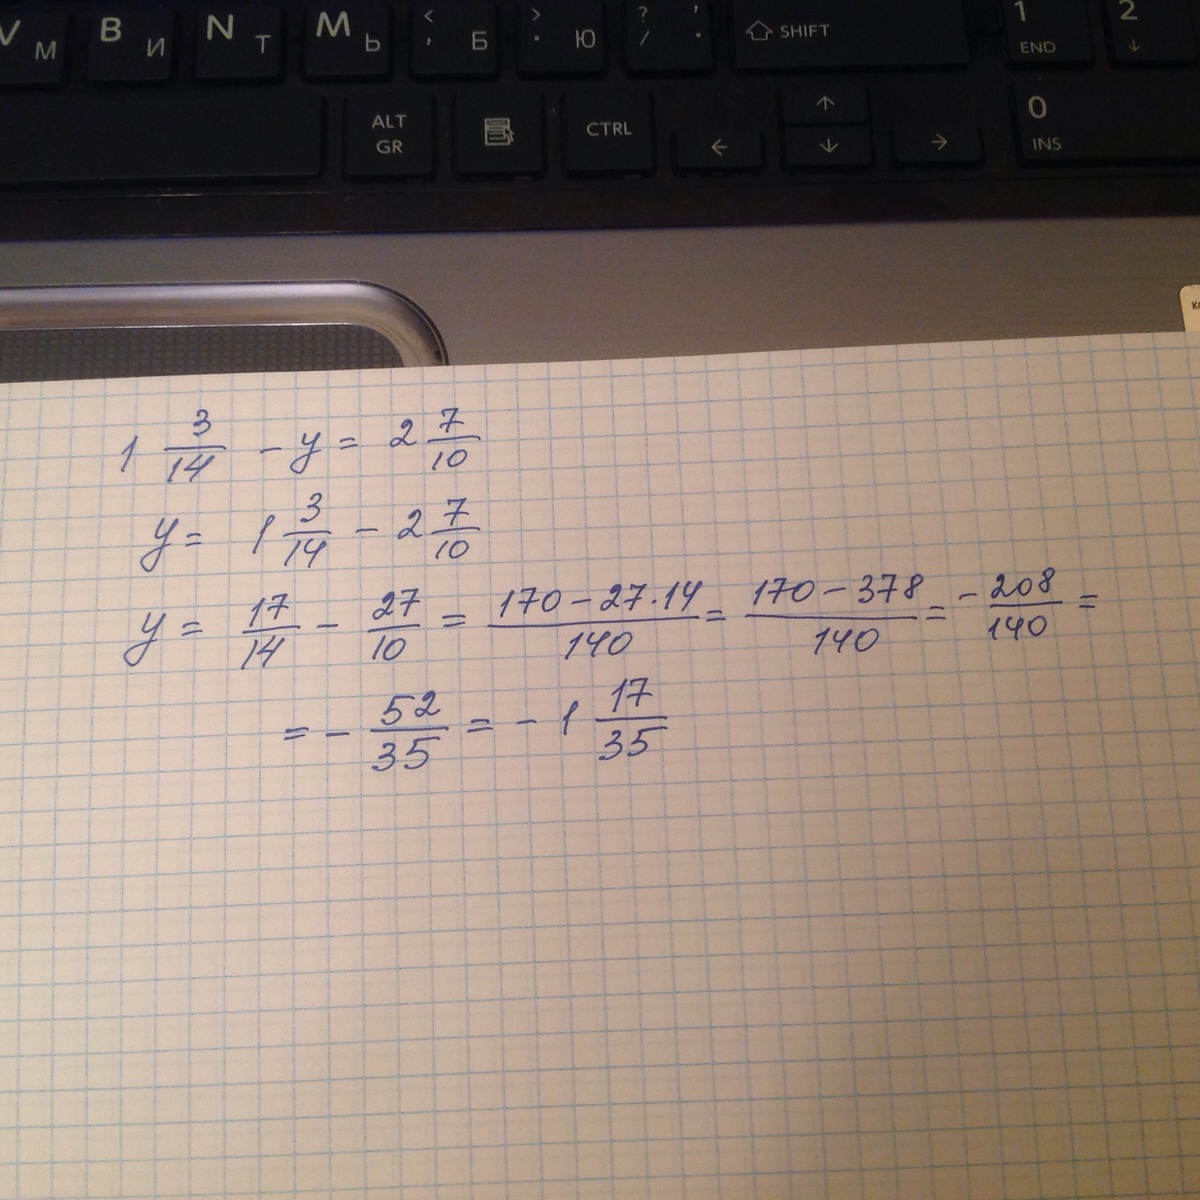 V М B И N Т M Ь < , Б > . Ю ? / ' . SHIFT 1 END 2 ↓
ALT GR CTRL ← ↑ ↓ → 0 INS
1 3/14 - y = 2 7/10
y = 1 3/14 - 2 7/10
y = 17/14 - 27/10 = (170 - 27·14)/140 = (170 - 378)/140 = - 208/140 =
= - 52/35 = - 1 17/35